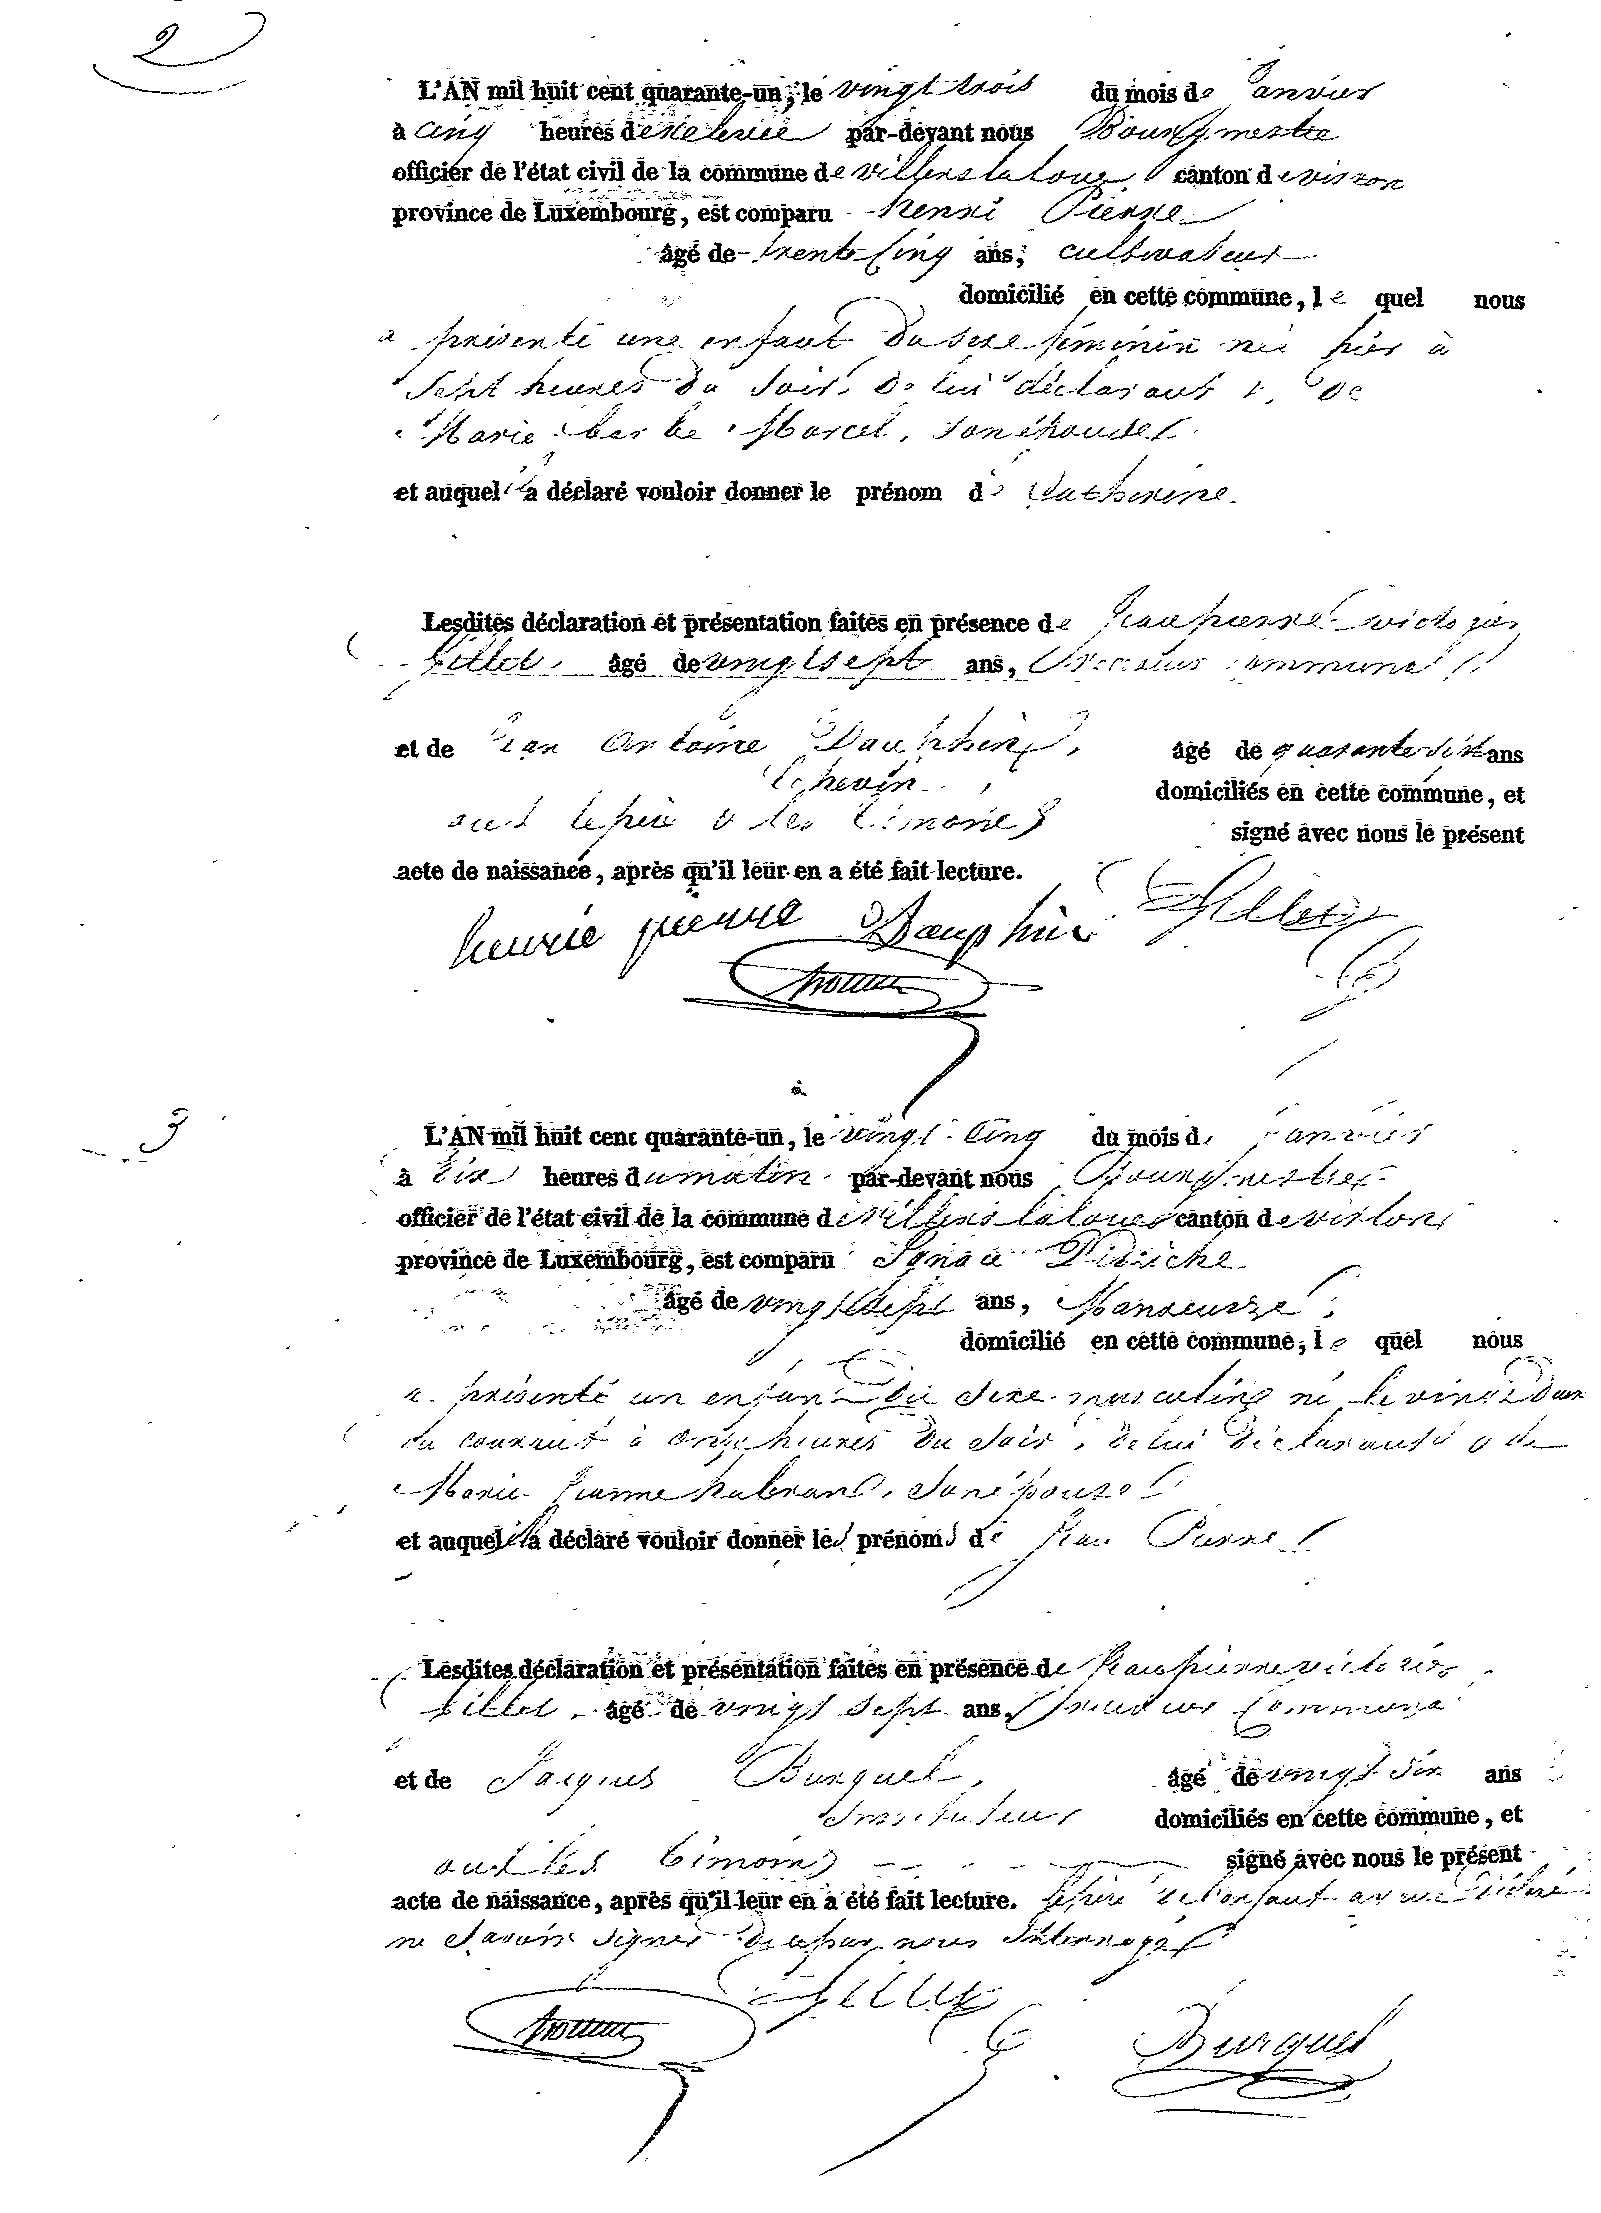 2
L'AN mil huit cent quarante-un, le vingt trois du mois de Janvier
à cinq heures de relevée par-devant nous Bourgmestre
officier de l'état civil de la commune de villers la loue canton de virton
province de Luxembourg, est comparu henri Pierre
âgé de trente cinq ans, cultivateur
domicilié en cette commune, le quel nous
a présenté une enfant du sexe féminin née hier à
sept heures du soir, de lui déclarant & de
Marie barbe Marcel, son épouse
et auquel il a déclaré vouloir donner le prénom de Catherine.
Lesdites déclaration et présentation faites en présence de Jean pierre victo rien
Gillet, âgé de vingt sept ans, receveur communal
et de Jean Antoine Dauphin, âgé de quarante sixt ans
Echevin, domiciliés en cette commune, et
ont le père & les témoins signé avec nous le présent
acte de naissance, après qu'il leur en a été fait lecture.
henrie pierre Dauphin Gillet
3
L'AN mil huit cent quarante-un, le vingt cinq du mois de janvier
à dix heures du matin par-devant nous Bourgmestre
officier de l'état civil de la commune de villers la loue canton de virton
province de Luxembourg, est comparu Ignace Didriche
âgé de vingt sept ans, Manoeuvre
domicilié en cette commune, le quel nous
a présenté un enfant du sexe masculine né le vingt deux
du courant à onze heures du soir, de lui déclarant & de
Marie Jeanne habran, son épouse
et auquel il a déclaré vouloir donner les prénoms de Jean Pierre
Lesdites déclaration et présentation faites en présence de Jean pierre victorien
Gillet, âgé de vingt sept ans, receveur Communal
et de Jacques Burquel, âgé de vingt six ans
Instituteur domiciliés en cette commune, et
ont les témoins signé avec nous le présent
acte de naissance, après qu'il leur en a été fait lecture. le père de l'enfant ayant déclaré
ne savoir signer de ce par nous Interrogé
Gillet
Burquel